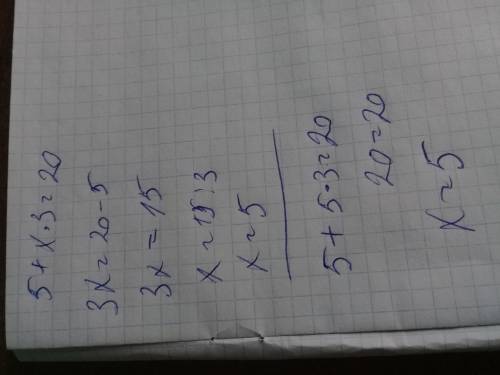 5+x·3=20
3x=20-5
3x=15
x=15:3
x=5
5+5·3=20
20=20
x=5